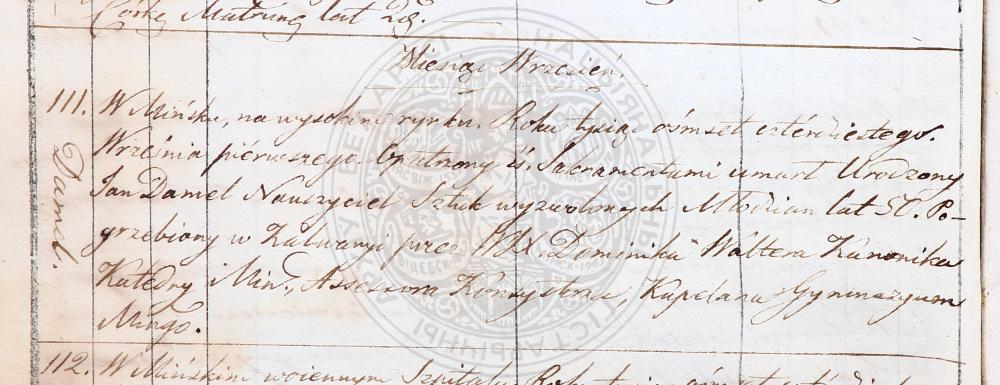 Córkę Matrunę lat 28.
Miesiąc Wrzesień.
111. W Mińsku, na wysokim rynku. Roku tysiąc ośmset czterdziestego
Damel.
Września piérwszego. Opatrzony ŚŚ. Sakramentami umarł Urodzony
Jan Damel Nauczyciel Sztuk wyzwolonych Młodzian lat 50. Po-
grzebiony w Kalwaryi przez WJX. Dominika Waltera Kanonika
Katedry Miń., Assesora Konsystorza, Kapelana Gymnazyum
Mińgo.
112. W Mińskim woiennym Szpitalu Roku tysiąc ośmset